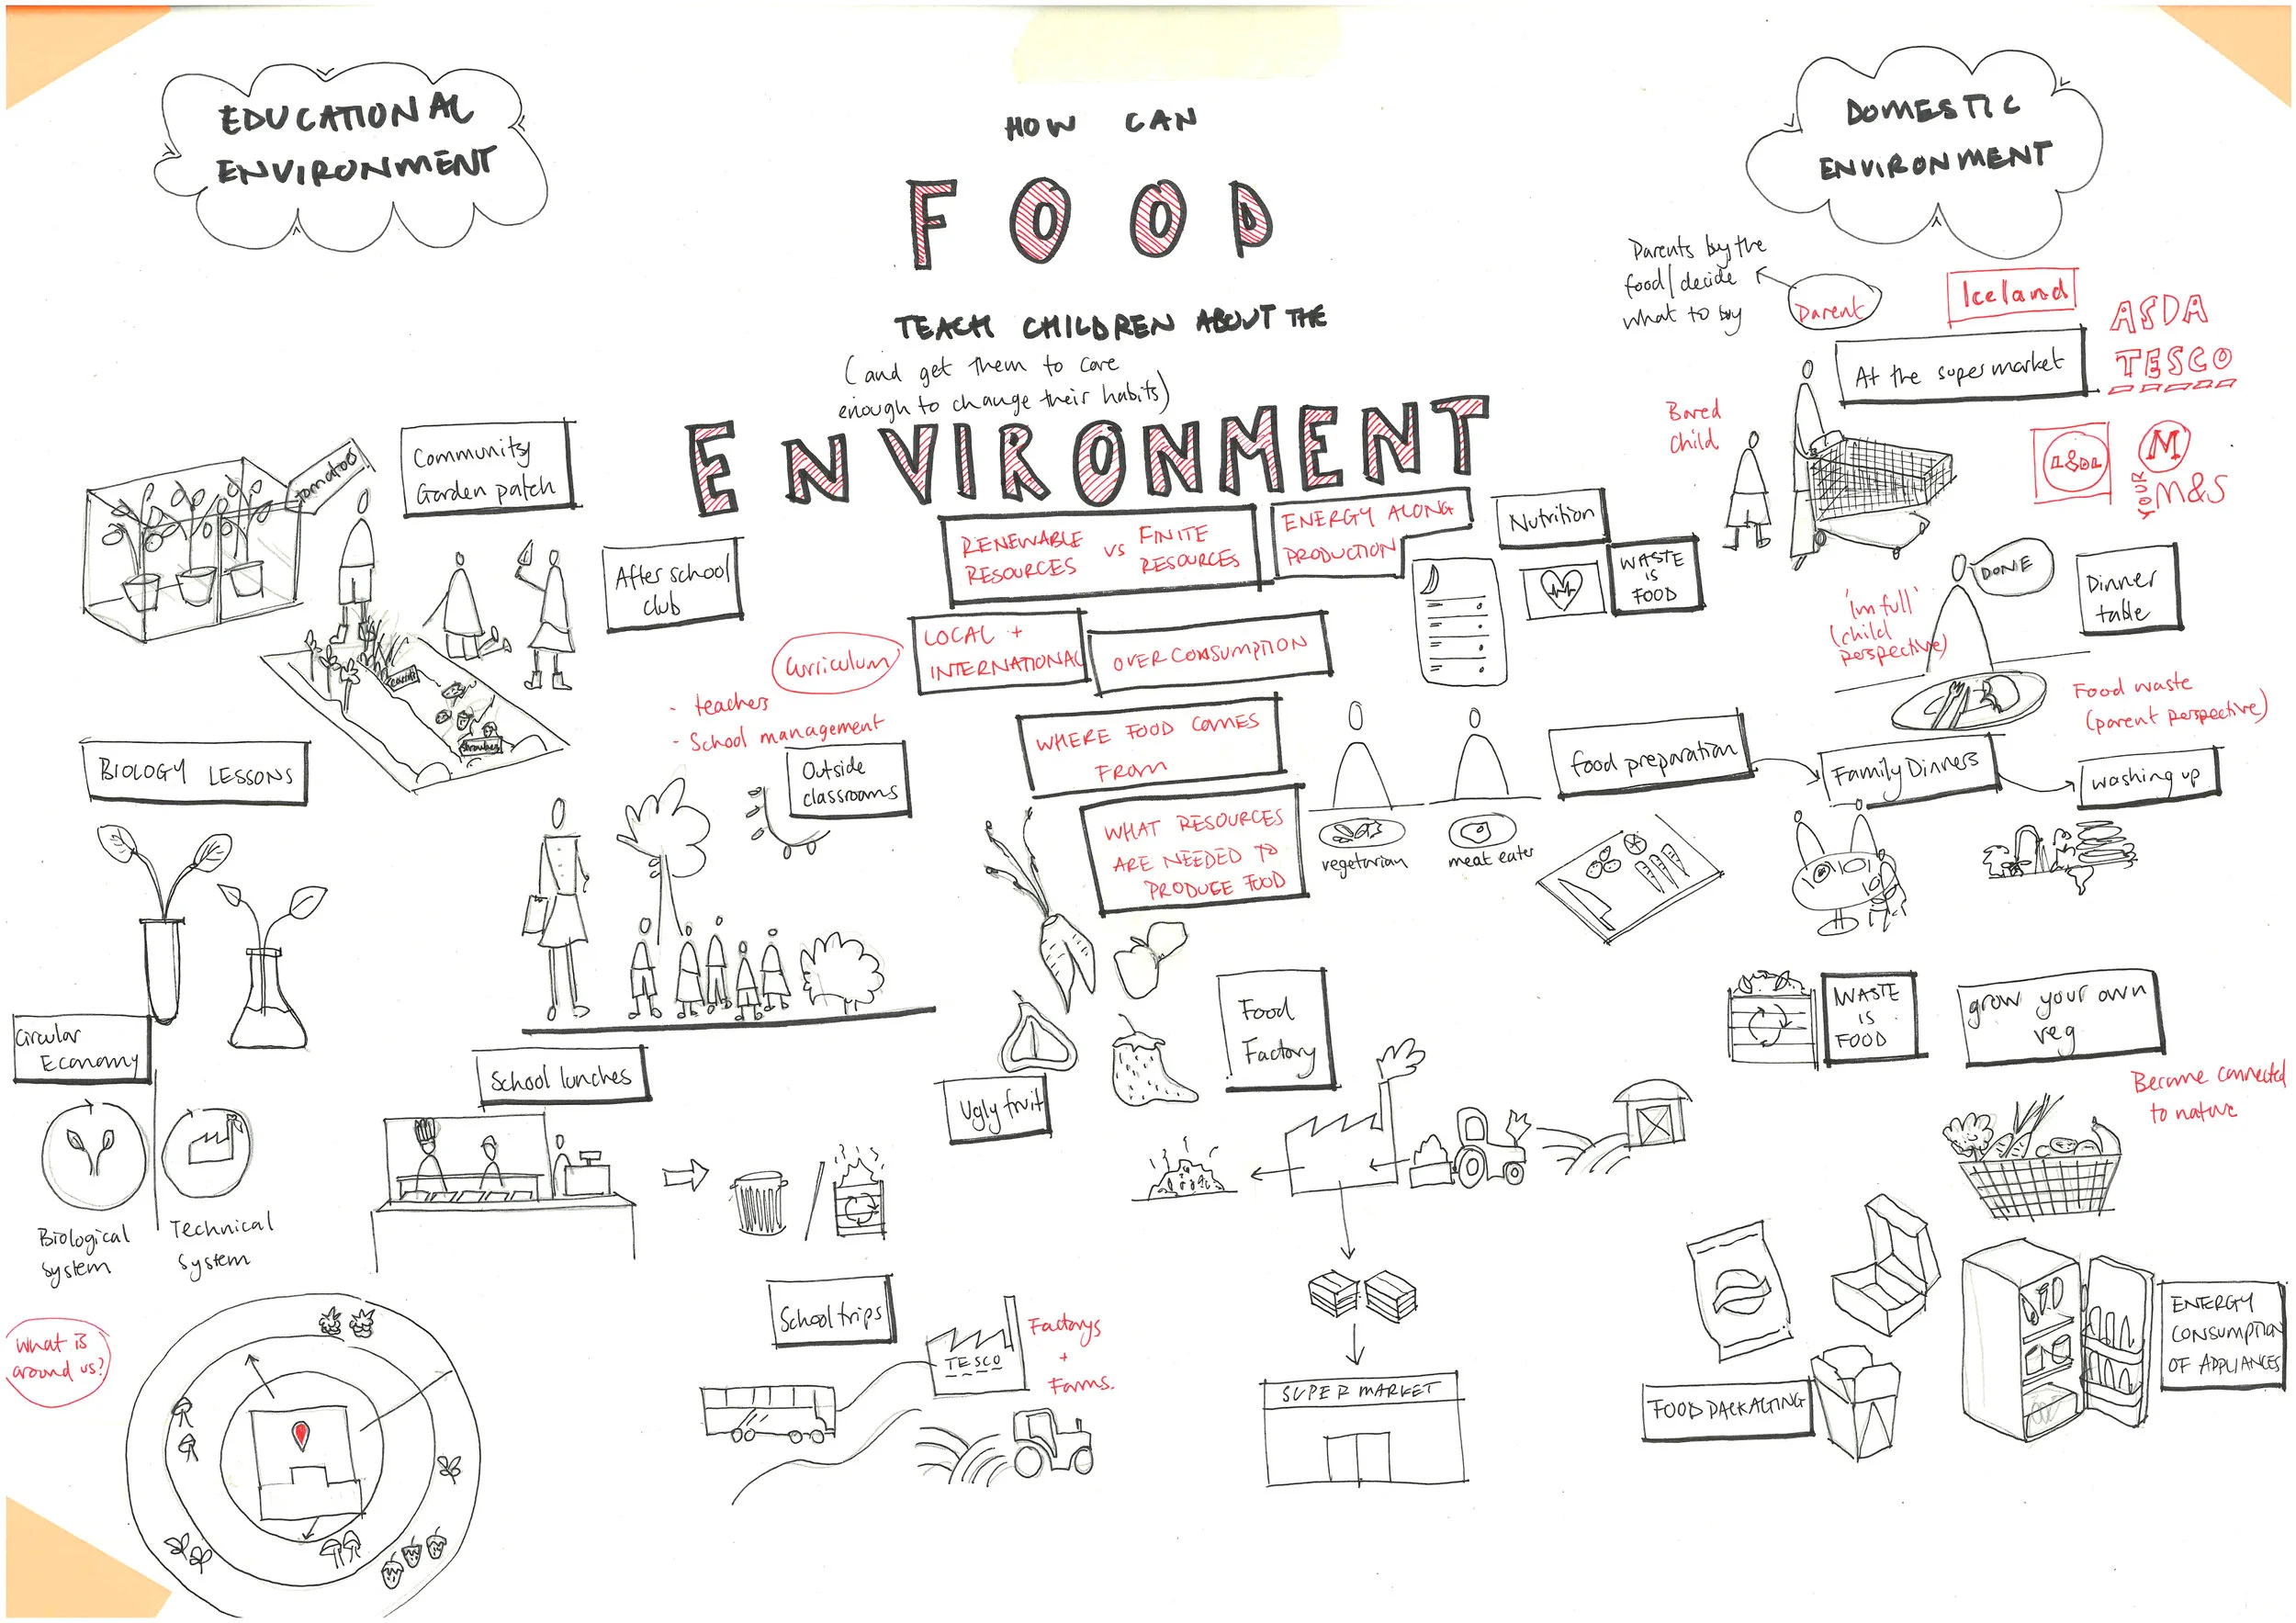 EDUCATIONAL
ENVIRONMENT
HOW CAN
FOOD
TEACH CHILDREN ABOUT THE
(and get them to care
enough to change their habits)
ENVIRONMENT
DOMESTIC
ENVIRONMENT
Parents buy the
food/decide
what to buy
Parent
Iceland
ASDA
TESCO
At the supermarket
Bored
child
M
YOUR
M&S
tomatoes
Community
Garden patch
After school
club
carrots
RENEWABLE
RESOURCES
vs
FINITE
RESOURCES
ENERGY ALONG
PRODUCTION
Nutrition
WASTE
IS
FOOD
LOCAL +
INTERNATIONAL
OVERCONSUMPTION
Curriculum
- teachers
- School management
DONE
Dinner
table
'im full'
(child
perspective)
Food waste
(parent perspective)
WHERE FOOD COMES
FROM
WHAT RESOURCES
ARE NEEDED TO
PRODUCE FOOD
vegetarian
meat eater
food preparation
Family Dinners
washing up
BIOLOGY LESSONS
Outside
classrooms
Circular
Economy
Biological
system
Technical
System
School lunches
Ugly fruit
Food
Factory
WASTE
IS
FOOD
grow your own
veg
Become connected
to nature
What is
around us?
School trips
TESCO
Factorys
+
Farms.
SUPERMARKET
FOOD PACKAGING
ENERGY
CONSUMPTION
OF APPLIANCES